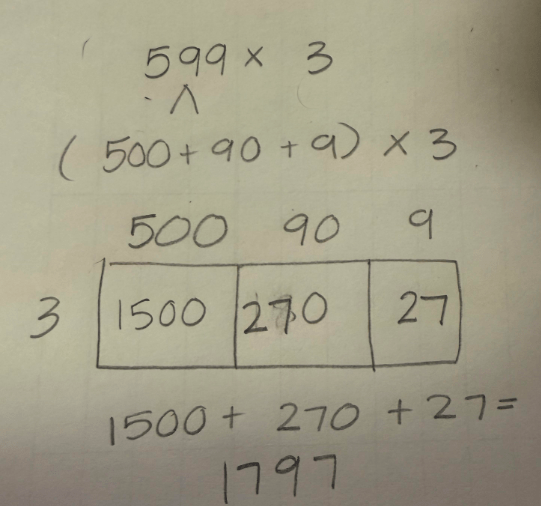 599 × 3
^
(500 + 90 + 9) × 3
500 90 9
3 1500 270 27
1500 + 270 + 27 =
1797